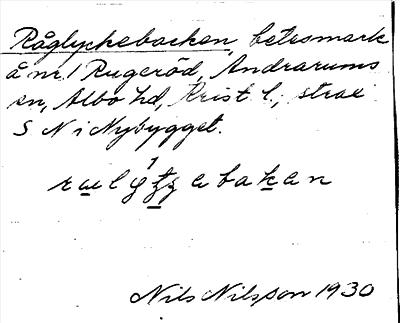 Råglyckebacken, betesmark
å nr 1 Rugeröd, Andrarums
sn, Albo hd, Krist. l.; strax
S N i Nybygget.
Nils Nilsson 1930